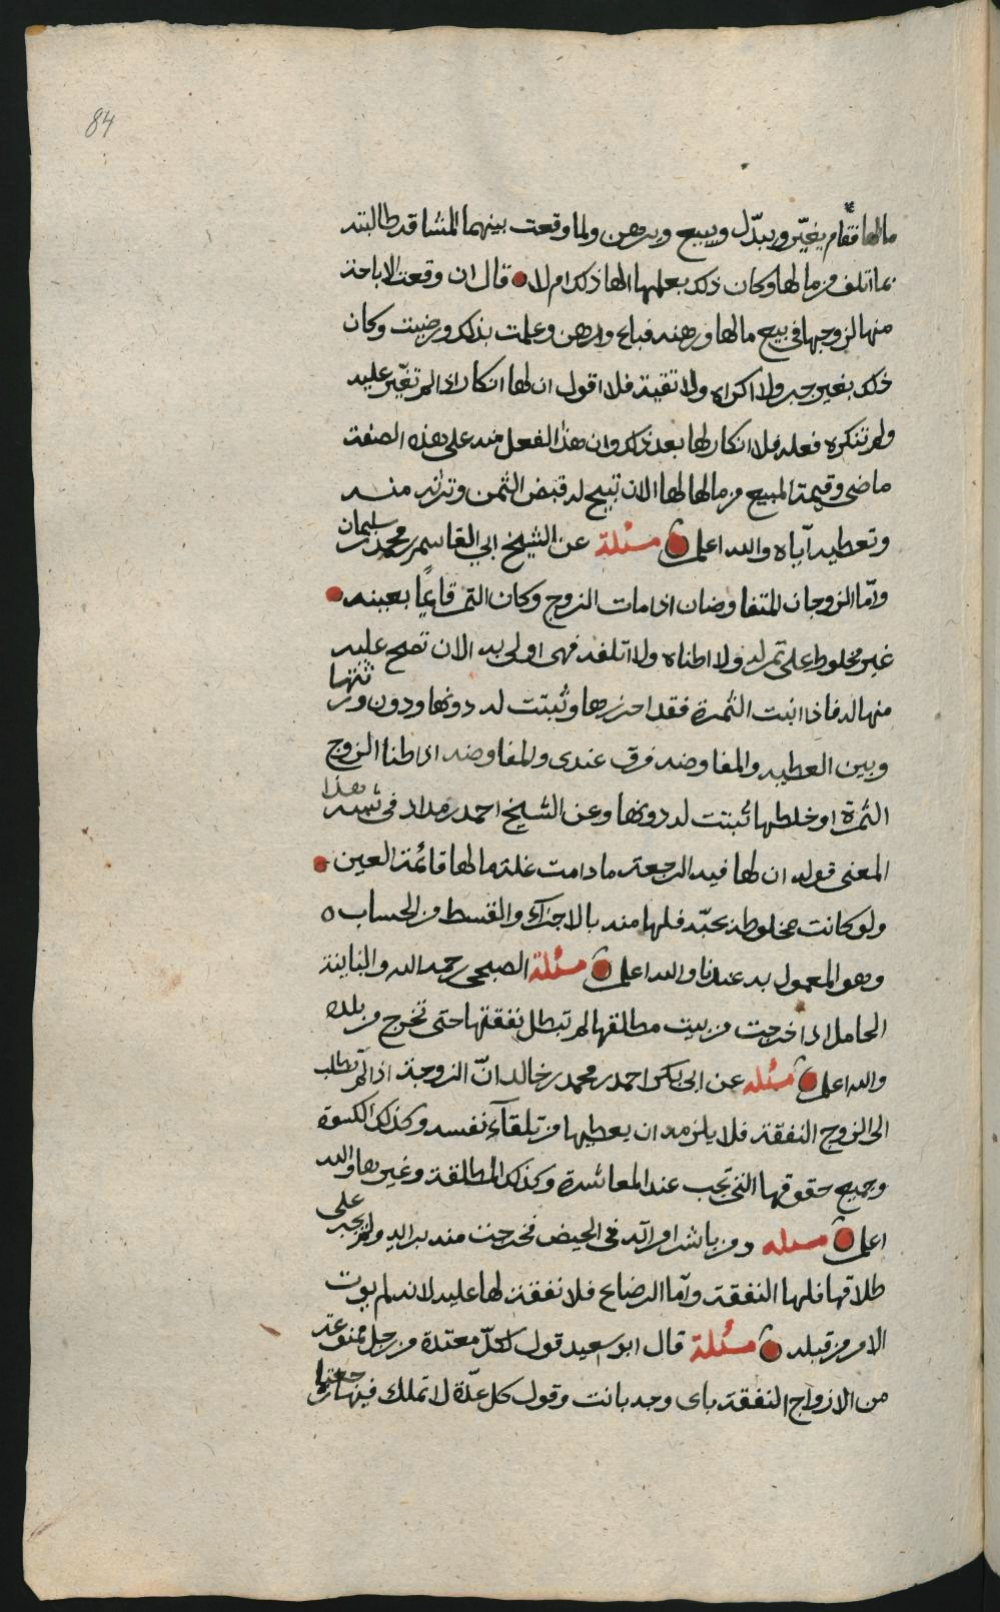 84
مالها فقام يغيّر ويبدّل ويبيع ويرهن ولما وقعت بينهما المشاقة طالبته
بما اتلف من مالها وكان ذلك بعلمها الها ذلك ام لا قال ان وقعت الاباحة
منها لزوجها في بيع مالها ورهنه فباع وارهن وعلمت بذلك ورضيت وكان
ذلك بغير جبر ولا اكراه ولا تقية فلا اقول ان لها انكار اذا لم تغيّر عليه
ولم تنكره فعله فلا انكار لها بعد ذلك وان هذا الفعل منه على هذه الصفة
ماضي وقيمة المبيع من مالها لها الا ان تبيح له قبض الثمن وتبرئه منه
وتعطيه اياه والله اعلم مسئلة عن الشيخ ابي القاسم بن محمد بن سليمان
وامّا الزوجان المتفاوضان اذا مات الزوج وكان التمر قائمًا بعينه
غير مخلوط على تمر له ولا اطناه ولا اتلفه فهي اولى به الا ان تصح عليه
منها له فاذا اثبت الثمرة فقد احرزها وثبتت له دونها ودون ورثتها
وبين العطيه والمفاوضه فرق عندى والمفاوضه اذا طنا الزوج
الثمرة او خلطها ثبتت له دونها وعن الشيخ احمد بن مداد في شبه هذا
المعنى قوله ان لها فيه الرجعة ما دامت غلة مالها قائمة العين
ولو كانت مخلوطة بحبّه فلها منه بالاجزاء والقسط من الحساب
وهو المعمول به عندنا والله اعلم مسئلة الصبحي رحمه الله والباينة
الحامل اذا خرجت من بيت مطلقها لم تبطل نفقتها حتى تخرج من بلده
والله اعلم مسئله عن ابى بكر احمد بن محمد بن خالد انّ الزوجة اذا لم تطلب
الى الزوج النفقة فلا يلزمه ان يعطيها من تلقاء نفسه وكذلك الكسوة
وجميع حقوقها التي تجب عند المعاشرة وكذلك المطلقة وغيرها والله
اعلم مسئله ومن باشر امراته في الحيض فخرجت منه برأي ولم يجبر على
طلاقها فلها النفقة وامّا الرضاع فلا نفقة لها عليه لانه لم يؤت
الامر من قبله مسئلة قال ابو سعيد قول لكلّ معتدة من رجل ممنوعة
من الازواج النفقة باى وجه بانت وقول كل عدّة لا تملك فيها رجعتها